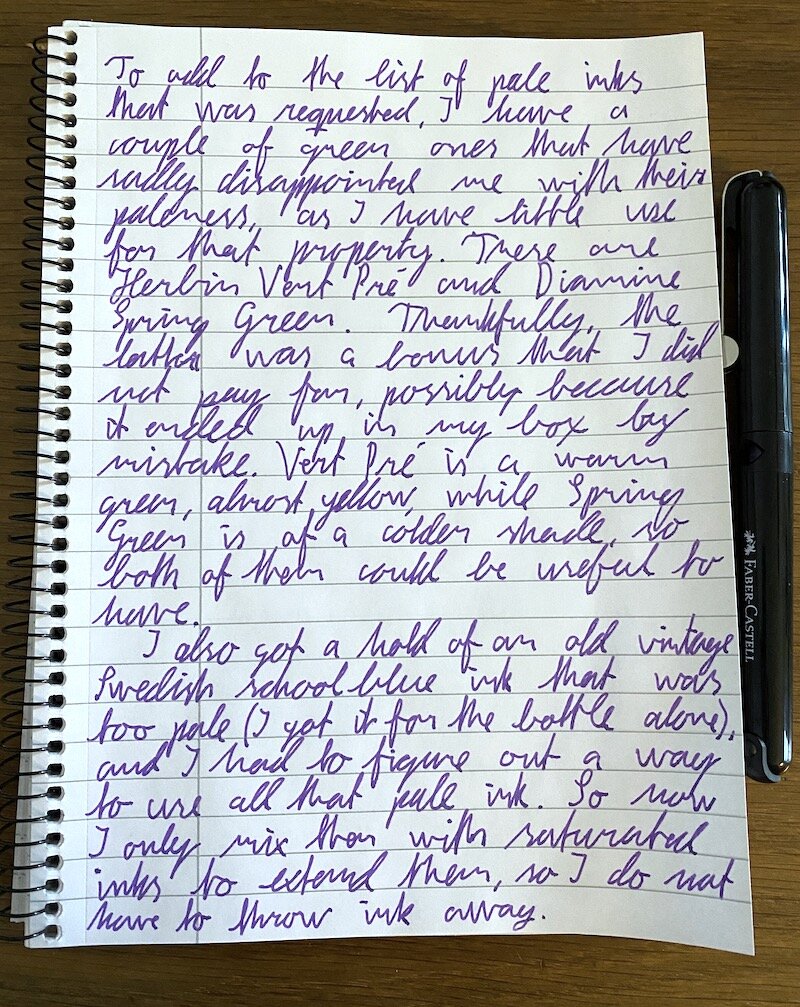 To add to the list of pale inks
that was requested, I have a
couple of green ones that have
sadly disappointed me with their
paleness, as I have little use
for that property. These are
Herbin Vert Pré and Diamine
Spring Green. Thankfully, the
latter was a bonus that I did
not pay for, possibly because
it ended up in my box by
mistake. Vert Pré is a warm
green, almost yellow, while Spring
Green is of a colder shade, so
both of them could be useful to
have.
I also got a hold of an old vintage
Swedish school blue ink that was
too pale (I got it for the bottle alone),
and I had to figure out a way
to use all that pale ink. So now
I only mix them with saturated
inks to extend them, so I do not
have to throw ink away.
FABER-CASTELL